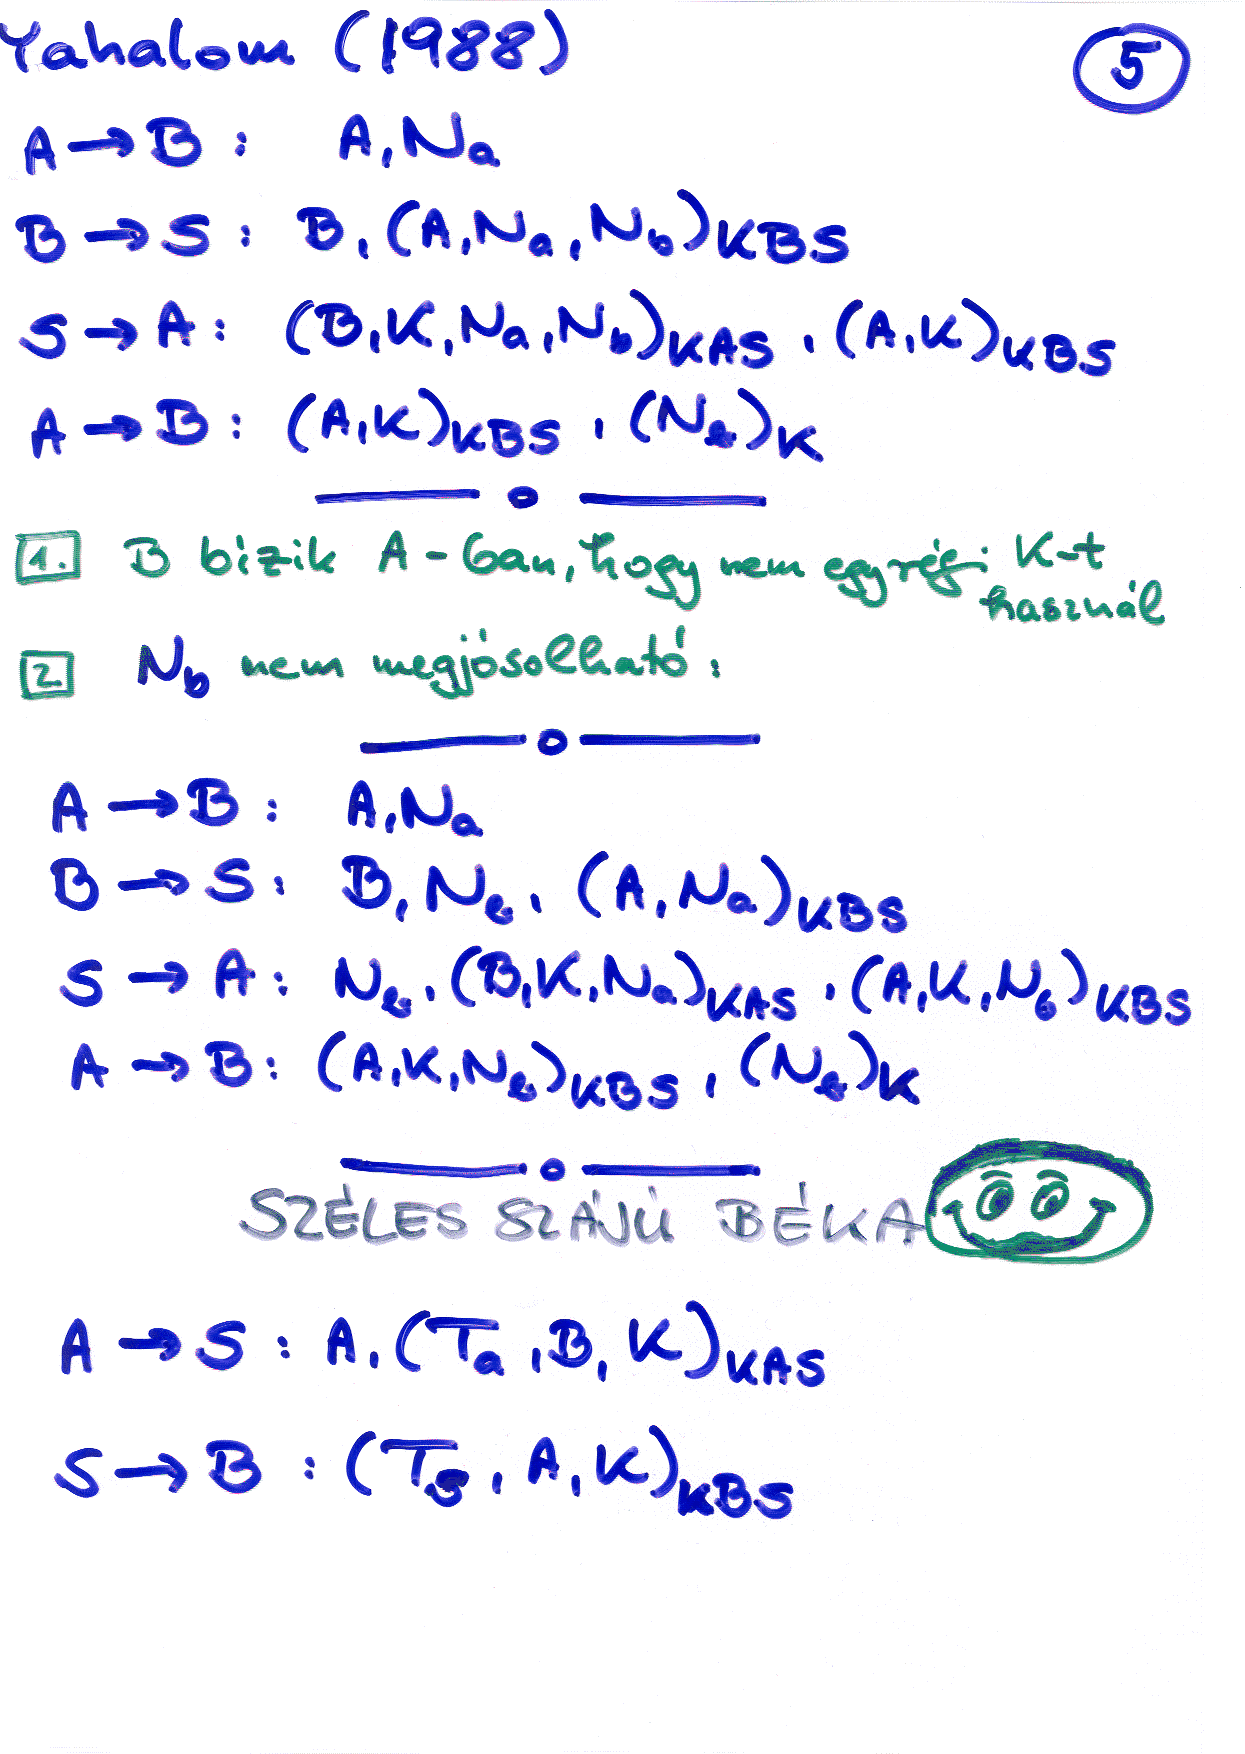 Yahalom (1988)
5
A → B : A, Na
B → S : B, (A, Na, Nb)KBS
S → A : (B, K, Na, Nb)KAS, (A, K)KBS
A → B : (A, K)KBS, (Nb)K
1. B bízik A-ban, hogy nem egy régi K-t
használ
2 Nb nem megjósolható:
A → B : A, Na
B → S : B, Nb, (A, Na)KBS
S → A : Nb, (B, K, Na)KAS, (A, K, Nb)KBS
A → B : (A, K, Nb)KBS, (Nb)K
SZÉLES SZÁJÚ BÉKA
A → S : A, (Ta, B, K)KAS
S → B : (Ts, A, K)KBS